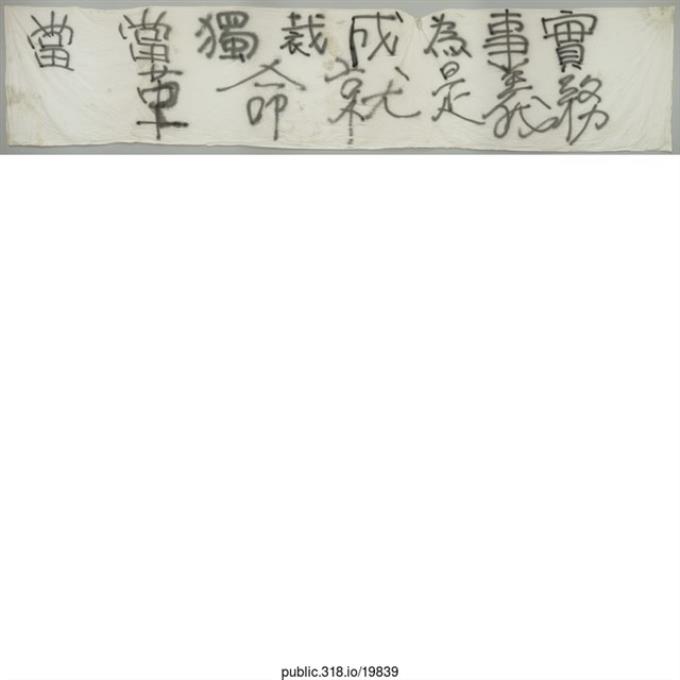 當 當獨裁成為事實
革命就是義務
public.318.io/19839